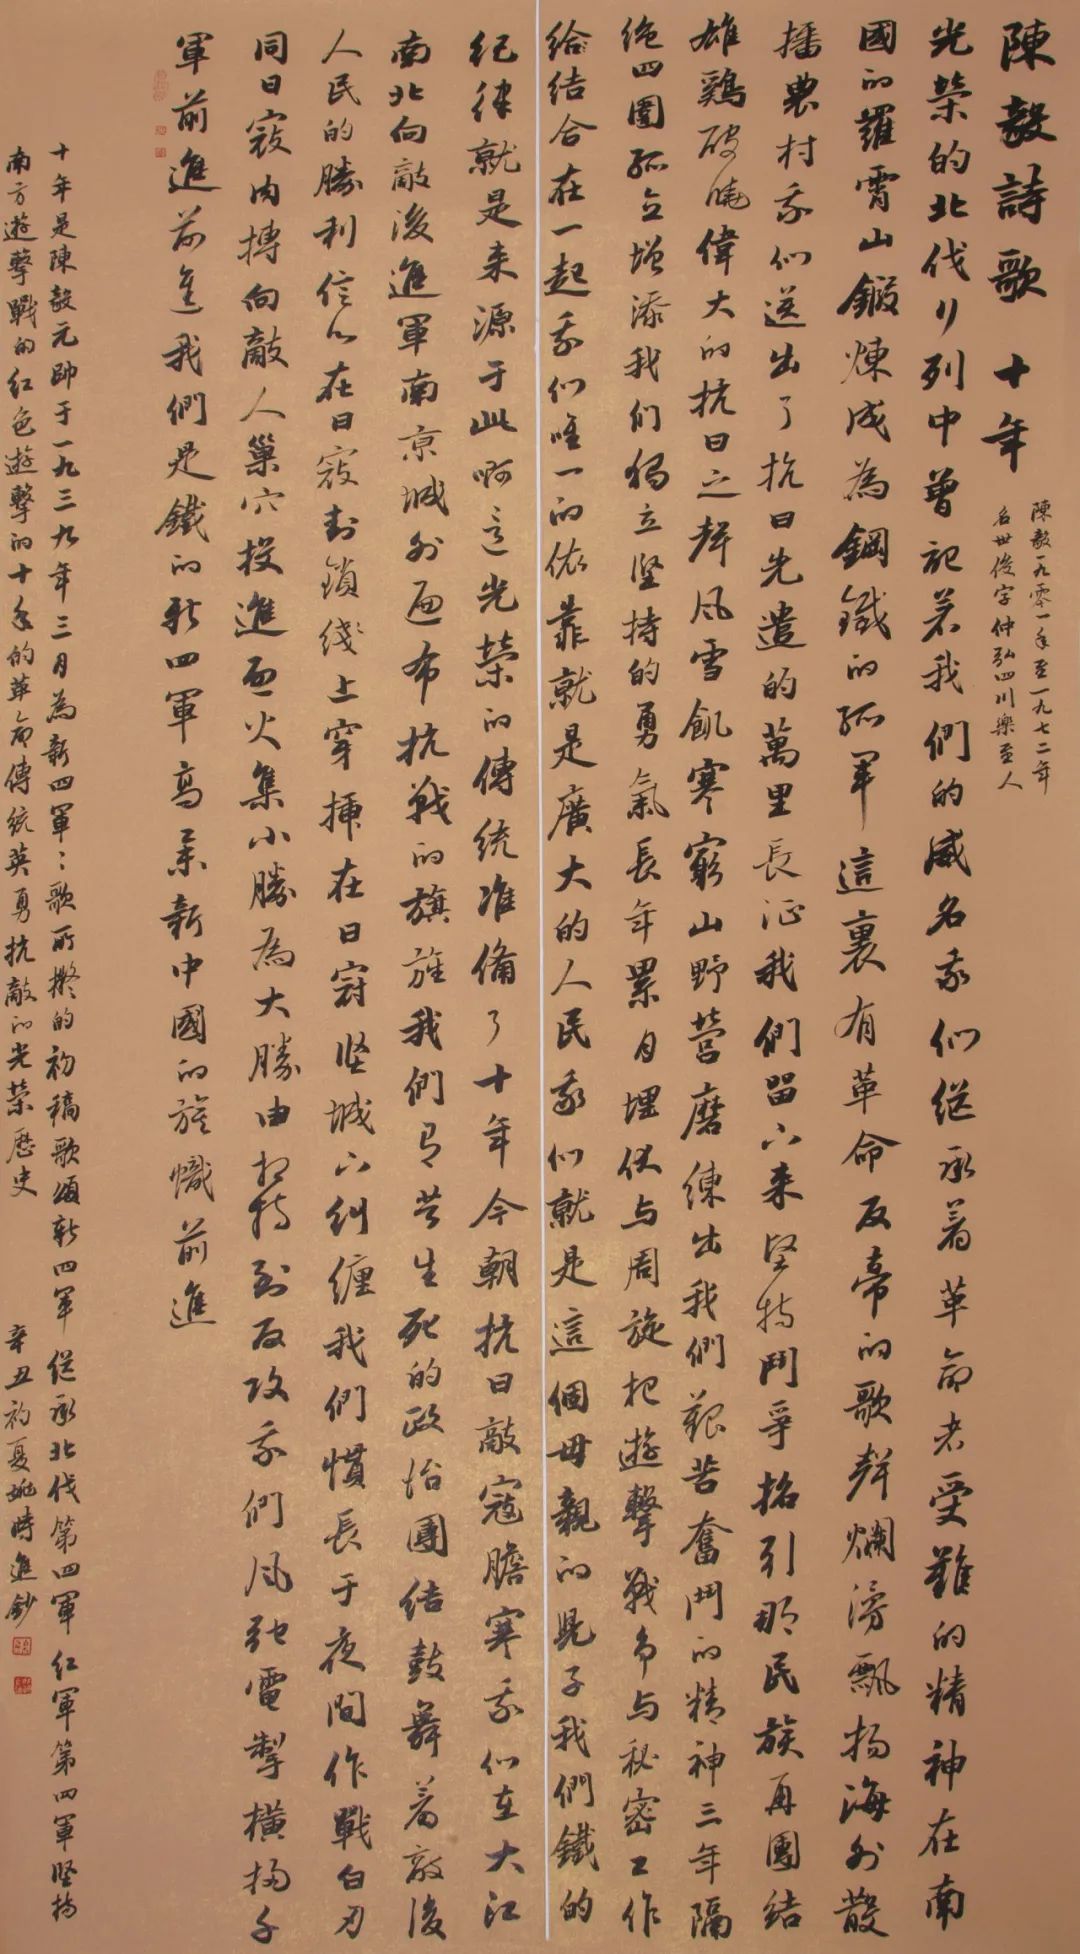 陳毅詩歌 十年
陳毅一九零一年至一九七二年
名世俊字仲弘四川樂至人
光榮的北伐行列中曾記着我們的威名我們继承着革命者受難的精神在南
國的羅霄山鍛煉成為鋼鐵的孤軍這裏有革命反帝的歌聲爛漫飄揚海外散
播農村我们送出了抗日先遣的萬里長征我們留下来堅持鬥爭招引那民族再團结
雄鷄破曉偉大的抗日之聲风雪飢寒窮山野營磨練出我們艱苦奮鬥的精神三年隔
绝四圍孤立增添我们獨立堅持的勇氣長年累月埋伏与周旋把遊擊戰争与秘密工作
给结合在一起我们唯一的依靠就是廣大的人民我们就是這個毋親的兒子我們鐵的
纪律就是来源于此啊這光榮的傳统准備了十年今朝抗日敵寇膽寒我们在大江
南北向敵後進軍南京城外遍布抗戰的旗旌我們有共生死的政治團结鼓舞着敵後
人民的勝利信心在日寇封鎖线上穿插在日寇堅城下糾纏我們慣長于夜間作戰白刃
同日寇肉搏向敵人巢穴投進炮火集小勝為大勝由相持到反攻我們风馳電掣橫掃千
軍前進前進我們是鐵的新四軍高举新中國的旗幟前進
十年是陳毅元帥于一九三九年三月為新四軍軍歌所擬的初稿歌頌新四軍继承北伐第四軍红軍第四軍堅持
南方遊擊戰的红色遊擊的十年的革命傳统英勇抗敵的光榮歷史
辛丑初夏姚時進鈔